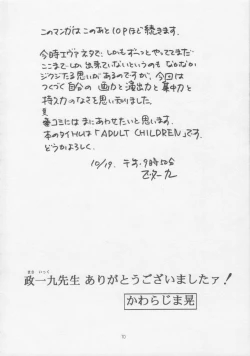 このマンガはこのあと10Pほど続きます。
今時エヴァネタで、しかもずーっとやってきまだ
ここまでしか出来ていないというのもなかなか
ジクジたる思いがあるのですが、今回は
つくづく自分の画力と演出力と集中力と
持久力のなさを思い知りました。
コミには まにあわせたいと思います。
本のタイトルは「ADULT CHILDREN」です。
どうかよろしく。
10/19. 午前9時
政一九先生 ありがとうございましたァ!
かわらじま晃
10